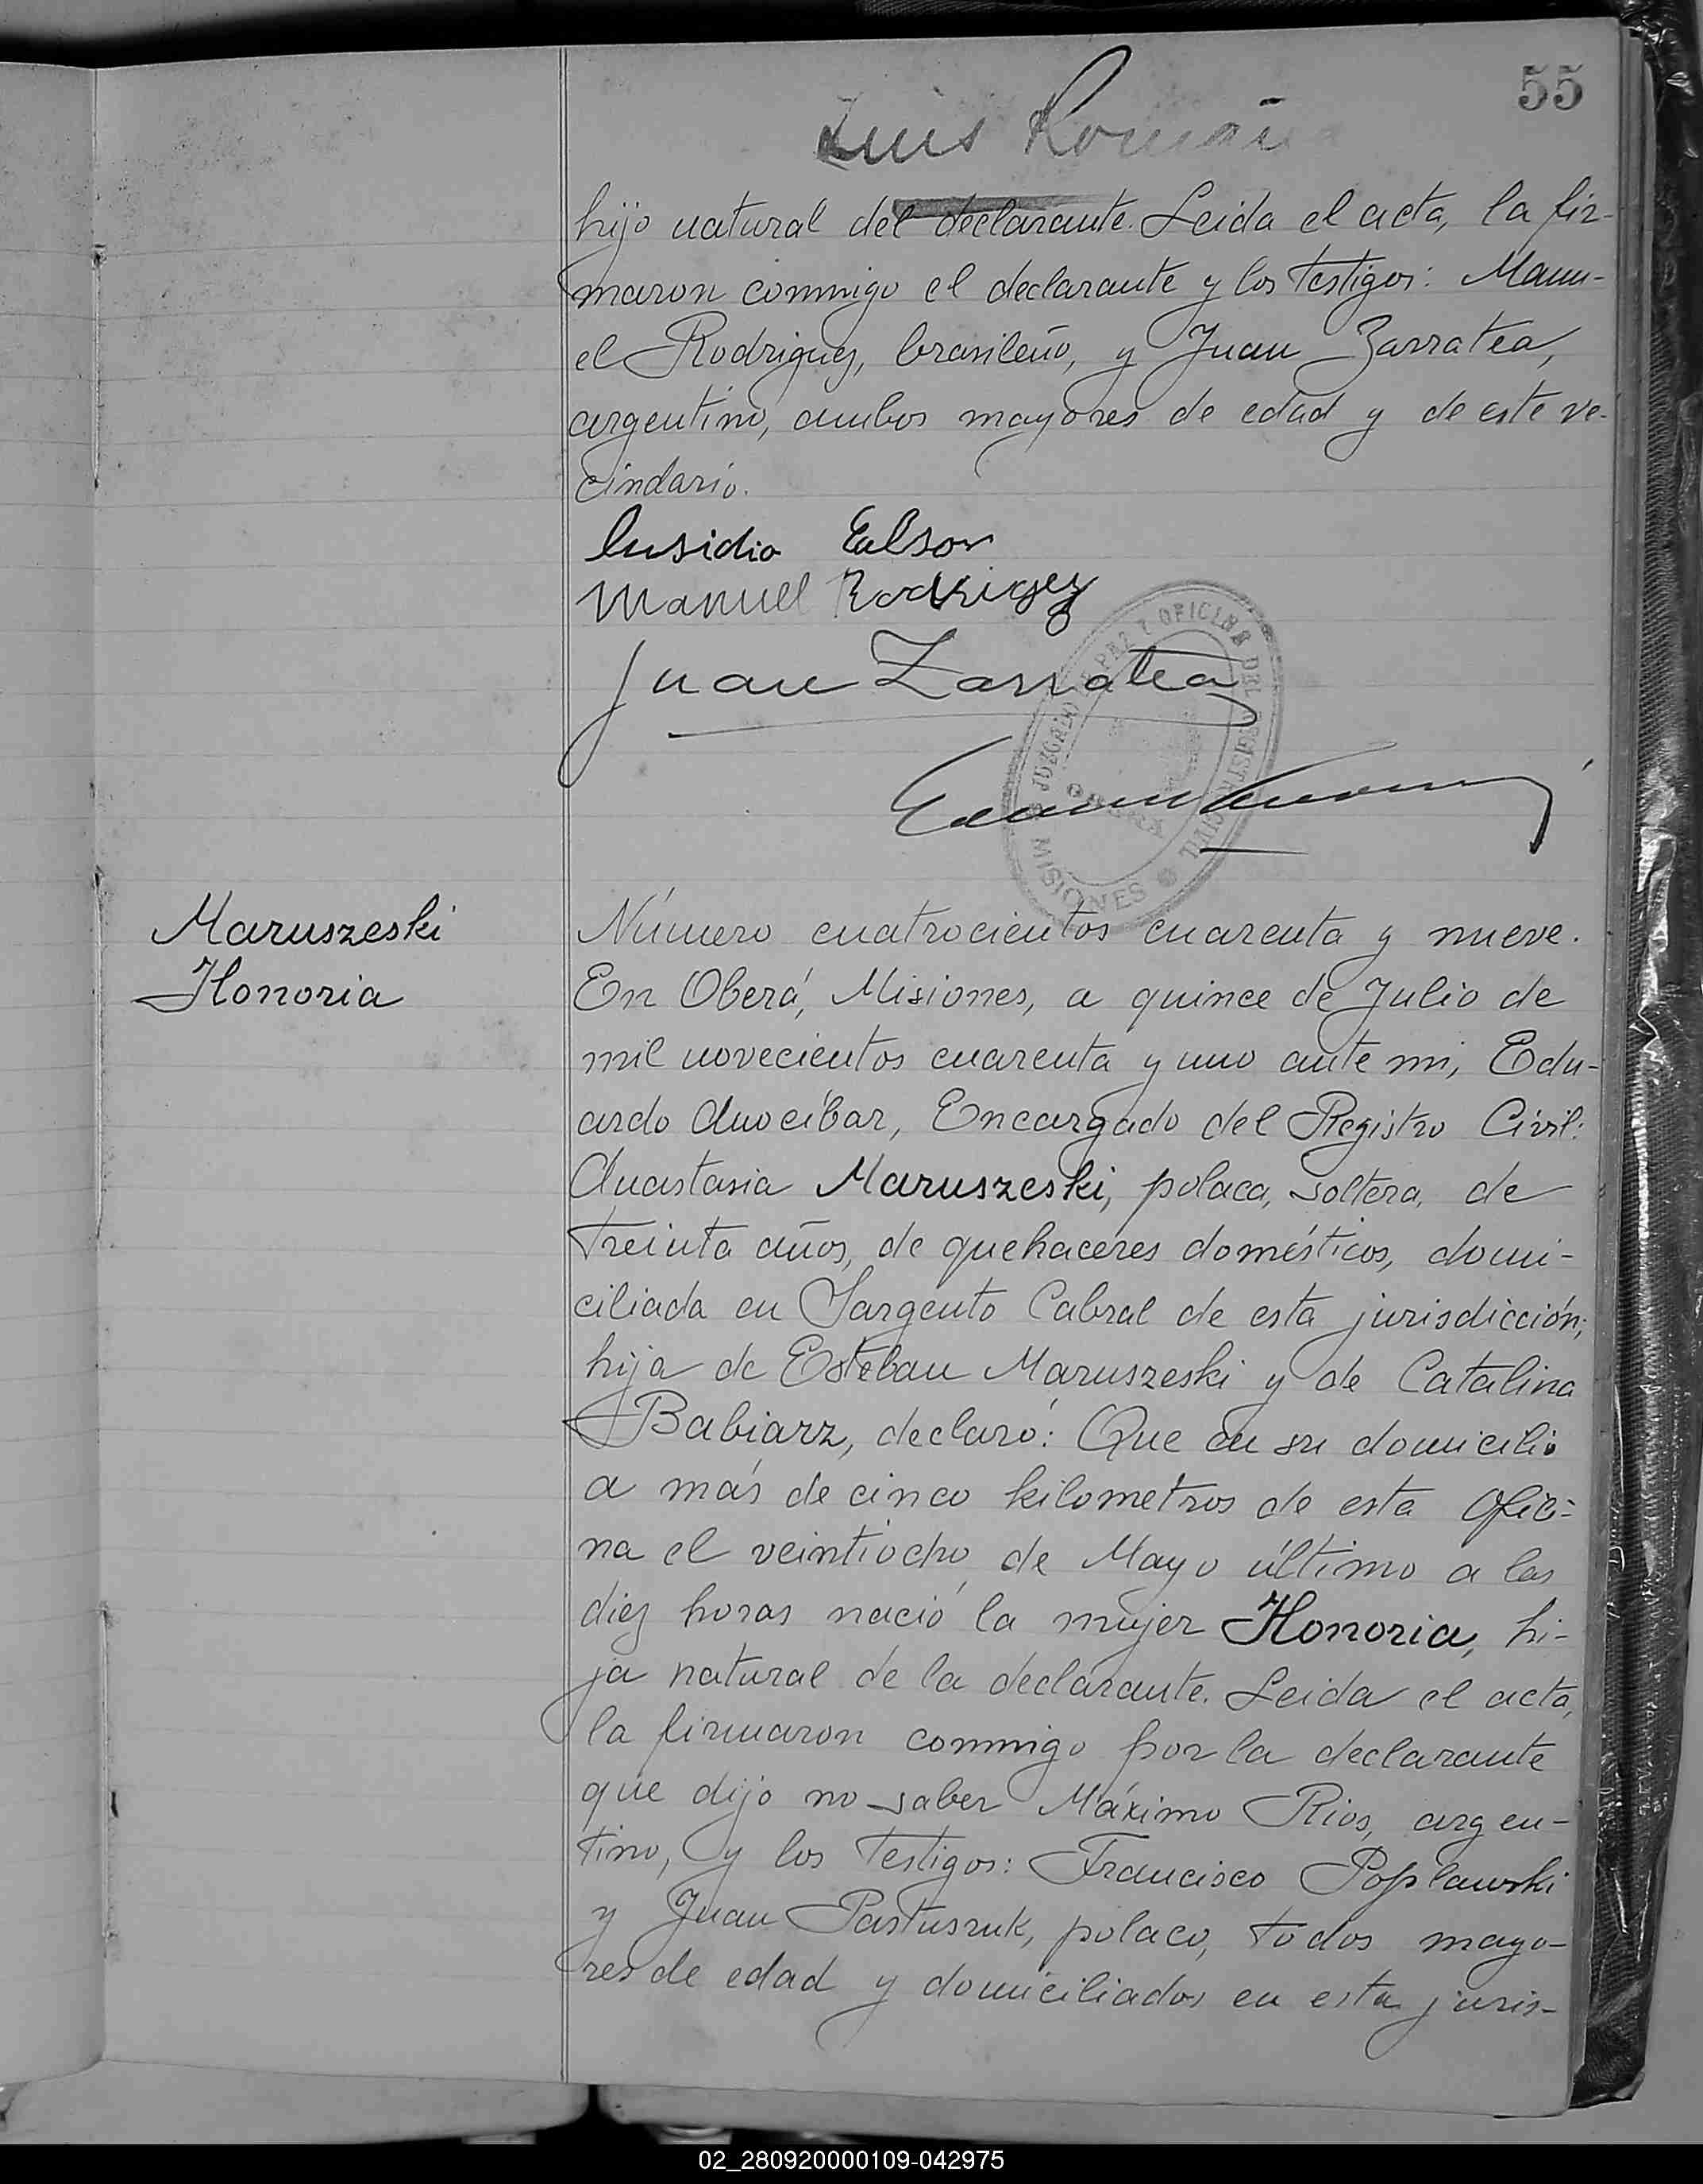 55
Luis Román
hijo natural del declarante. Leida el acta, la fir-
maron conmigo el declarante y los testigos: Manu-
el Rodriguez, brasileño, y Juan Zarratea,
argentino, ambos mayores de edad y de este ve-
cindario.
Manuel Rodriguez
Juan Zarratea
JUZGADO DE PAZ Y OFICINA DEL REGISTRO CIVIL
OBERA
MISIONES
Maruszeski
Honoria
Número cuatrocientos cuarenta y nueve.
En Oberá, Misiones, a quince de Julio de
mil novecientos cuarenta y uno ante mi, Edu-
ardo Anocibar, Encargado del Registro Civil:
Anastasia Maruszeski, polaca, soltera, de
treinta años, de quehaceres domésticos, domi-
ciliada en Sargento Cabral de esta jurisdicción;
hija de Esteban Maruszeski y de Catalina
Babiarz, declaró: Que en su domicilio
a más de cinco kilometros de esta ofici-
na el veintiocho de Mayo último a las
diez horas nació la mujer Honoria, hi-
ja natural de la declarante. Leida el acta,
la firmaron conmigo por la declarante
que dijo no saber Máximo Rios, argen-
tino, y los testigos: Francisco Poplawski
y Juan Pastuszuk, polaco, todos mayo-
res de edad y domiciliados en esta juris-
02_280920000109-042975